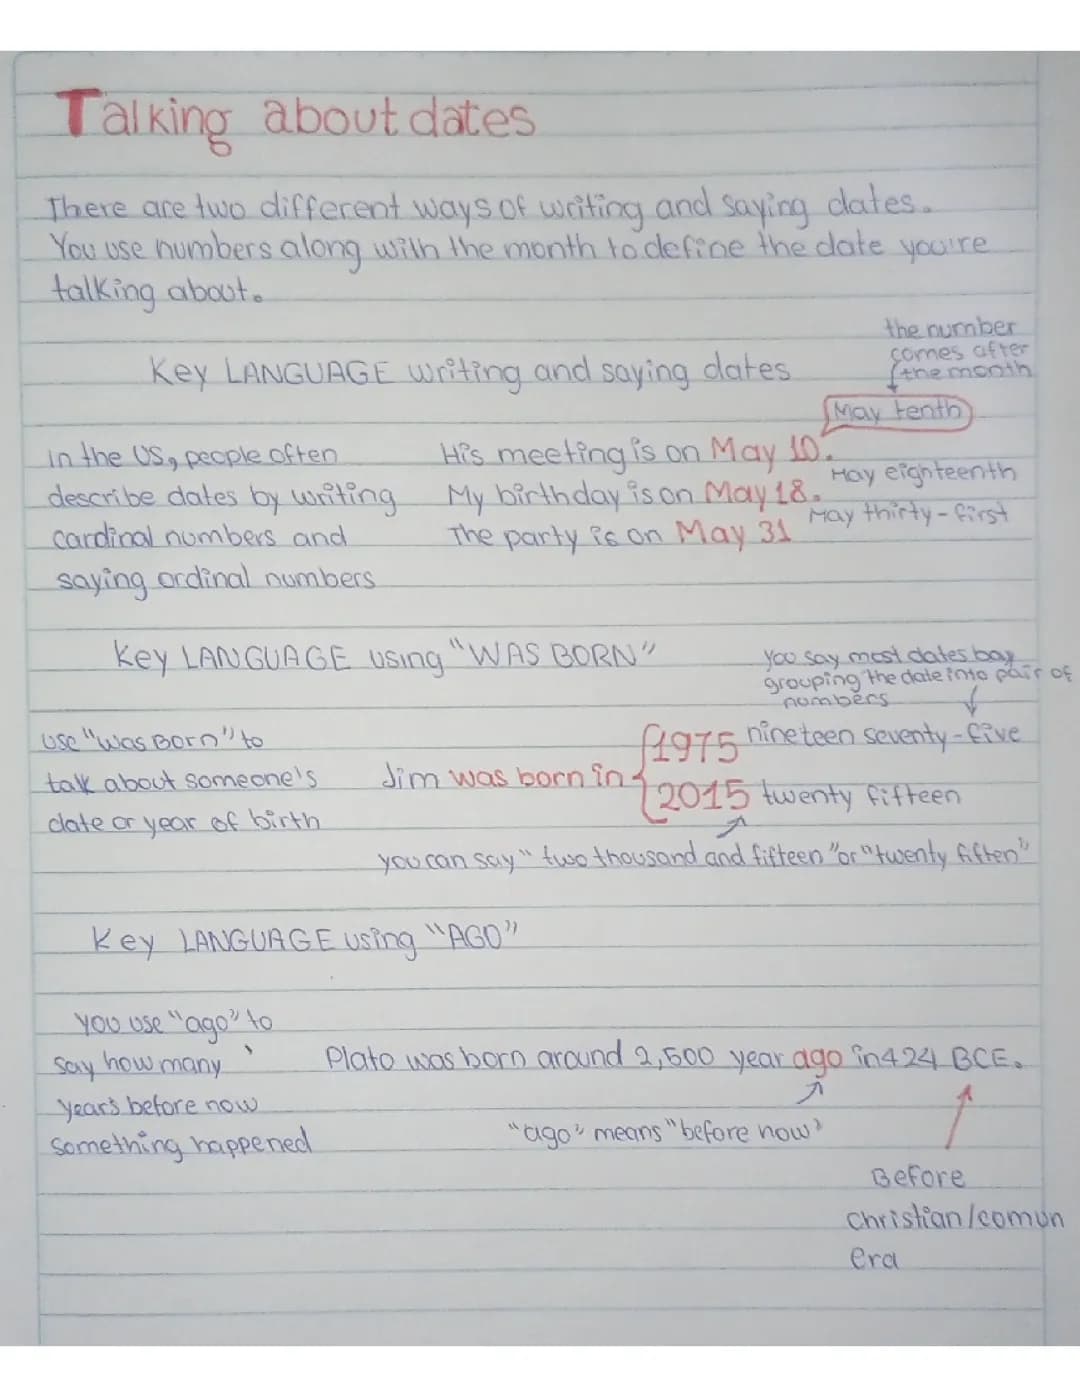 Talking about dates
There are two different ways of writing and saying dates.
You use numbers along with the month to define the date you're
talking about.
the number
comes after
the month
Key LANGUAGE writing and saying dates
May tenth
in the US, people often
describe dates by writing
cardinal numbers and
saying ordinal numbers
His meeting is on May 10.
My birthday is on May 18. May eighteenth
The party is on May 31 May thirty-first
Key LANGUAGE using "WAS BORN"
you say most dates bay
grouping the date into pair of
numbers
use "was Born" to
talk about someone's
date or year of birth
Jim was born in
1975 nineteen seventy-five
2015 twenty fifteen
you can say "two thousand and fifteen" or "twenty fiften"
Key LANGUAGE using "AGO"
you use "ago" to
say how many
years before now
something happened
Plato was born around 2,500 year ago in 424 BCE.
"ago" means "before now"
Before
christian/comun
era